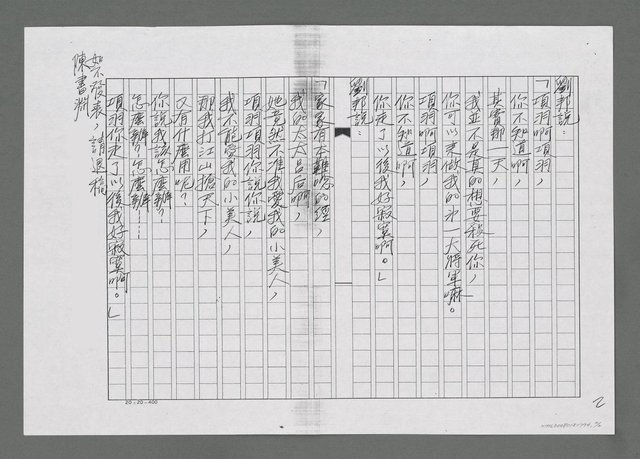 劉邦說：
「項羽啊項羽，
你不知道啊，
其實那一天，
我並不是真的想要殺死你，
你可以來做我的第一大將軍嘛。
項羽啊項羽，
你不知道啊，
你走了以後我好寂寞啊。」
劉邦說：
「家家有本難唸的經，
我的太太呂后啊，
她竟然不准我愛我的小美人，
項羽項羽你說你說，
我不能愛我的小美人，
那我打江山搶天下，
又有什麼用呢？
你說我該怎麼辦？
怎麼辦？怎麼辦……
項羽你走了以後我好寂寞啊。」
如不發表，請退稿
陳書淵
20×20=400
2